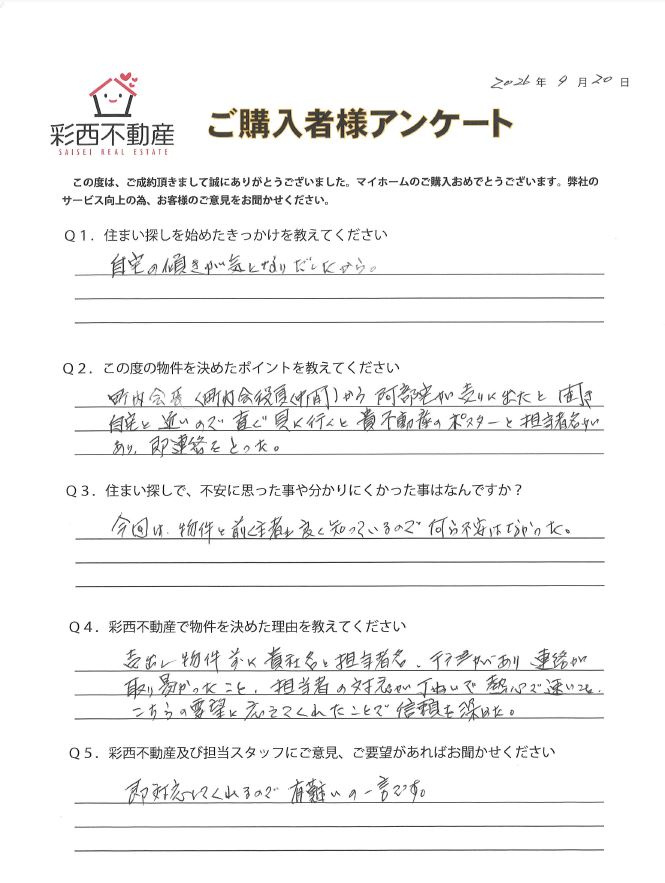 2026年 9月 20日
彩西不動産
SAISEI REAL ESTATE
ご購入者様アンケート
この度は、ご成約頂きまして誠にありがとうございました。マイホームのご購入おめでとうございます。弊社の
サービス向上の為、お客様のご意見をお聞かせください。
Q1．住まい探しを始めたきっかけを教えてください
自宅の傾きが気になりだしたから。
Q2．この度の物件を決めたポイントを教えてください
町内会長(町内会役員仲間)から阿部宅が売りに出たと聞き
自宅と近いので直ぐ見に行くと貴不動産のポスターと担当者名が
あり、即連絡をとった。
Q3．住まい探しで、不安に思った事や分かりにくかった事はなんですか？
今回は、物件と前住者も良く知っているので何ら不安はなかった。
Q4．彩西不動産で物件を決めた理由を教えてください
売出し物件前に貴社名と担当者名、があり連絡が
取り易かったこと、担当者の対応がていねいで熱心で速いこと、
こちらの要望に応えてくれたことで信頼を深めた。
Q5．彩西不動産及び担当スタッフにご意見、ご要望があればお聞かせください
即対応してくれるので有難いの一言です。